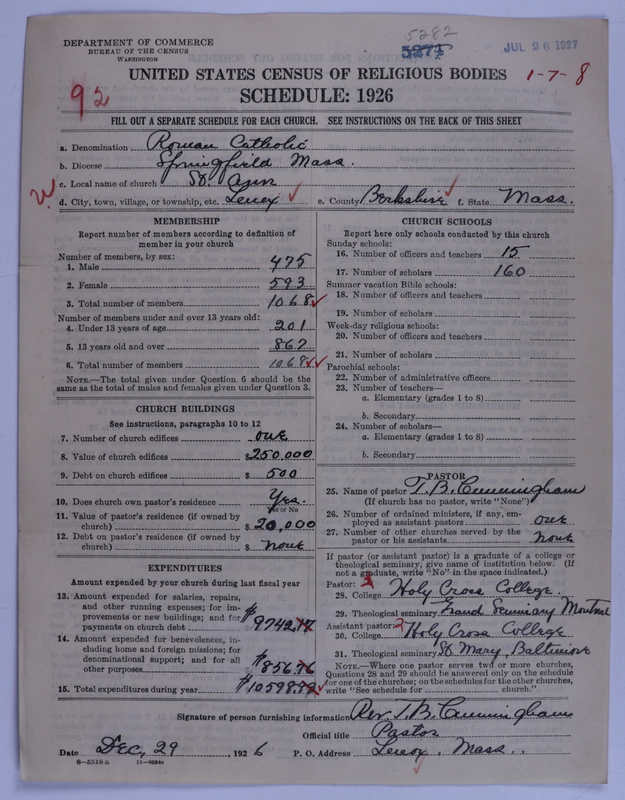 5282
5271
JUL 26 1927
DEPARTMENT OF COMMERCE
BUREAU OF THE CENSUS
WASHINGTON
UNITED STATES CENSUS OF RELIGIOUS BODIES
1-7-8
92
SCHEDULE: 1926
FILL OUT A SEPARATE SCHEDULE FOR EACH CHURCH. SEE INSTRUCTIONS ON THE BACK OF THIS SHEET
a. Denomination Roman Catholic
b. Diocese Springfield Mass.
c. Local name of church St. Ann
d. City, town, village, or township, etc. Lenox e. County Berkshire f. State Mass.
MEMBERSHIP
Report number of members according to definition of
member in your church
Number of members, by sex:
1. Male 475
2. Female 593
3. Total number of members 1068
Number of members under and over 13 years old:
4. Under 13 years of age 201
5. 13 years old and over 867
6. Total number of members 1068
NOTE.—The total given under Question 6 should be the
same as the total of males and females given under Question 3.
CHURCH BUILDINGS
See instructions, paragraphs 10 to 12
7. Number of church edifices one
8. Value of church edifices $250,000
9. Debt on church edifices $ 500
10. Does church own pastor's residence Yes.
Yes or No
11. Value of pastor's residence (if owned by
church) $ 20,000
12. Debt on pastor's residence (if owned by
church) $ none
EXPENDITURES
Amount expended by your church during last fiscal year
13. Amount expended for salaries, repairs,
and other running expenses; for im-
provements or new buildings; and for
payments on church debt $ 9742.17
14. Amount expended for benevolences, in-
cluding home and foreign missions; for
denominational support; and for all
other purposes $ 856.76
15. Total expenditures during year $ 10598.93
CHURCH SCHOOLS
Report here only schools conducted by this church
Sunday schools:
16. Number of officers and teachers 15
17. Number of scholars 160
Summer vacation Bible schools:
18. Number of officers and teachers
19. Number of scholars
Week-day religious schools:
20. Number of officers and teachers
21. Number of scholars
Parochial schools:
22. Number of administrative officers
23. Number of teachers—
a. Elementary (grades 1 to 8)
b. Secondary
24. Number of scholars—
a. Elementary (grades 1 to 8)
b. Secondary
PASTOR
25. Name of pastor T. B. Cunningham
(If church has no pastor, write "None")
26. Number of ordained ministers, if any, em-
ployed as assistant pastors one
27. Number of other churches served by the
pastor or his assistants none
If pastor (or assistant pastor) is a graduate of a college or
theological seminary, give name of institution below. (If
not a graduate, write "No" in the space indicated.)
Pastor: 2
28. College Holy Cross College.
29. Theological seminary Grand Seminary Montreal
Assistant pastor: 2
30. College Holy Cross College
31. Theological seminary St. Mary, Baltimore
NOTE.—Where one pastor serves two or more churches,
Questions 28 and 29 should be answered only on the schedule
for one of the churches; on the schedules for the other churches,
write "See schedule for church."
Signature of person furnishing information Rev. T. B. Cunningham
Official title Pastor
Date Dec, 29 1926 P. O. Address Lenox, Mass.